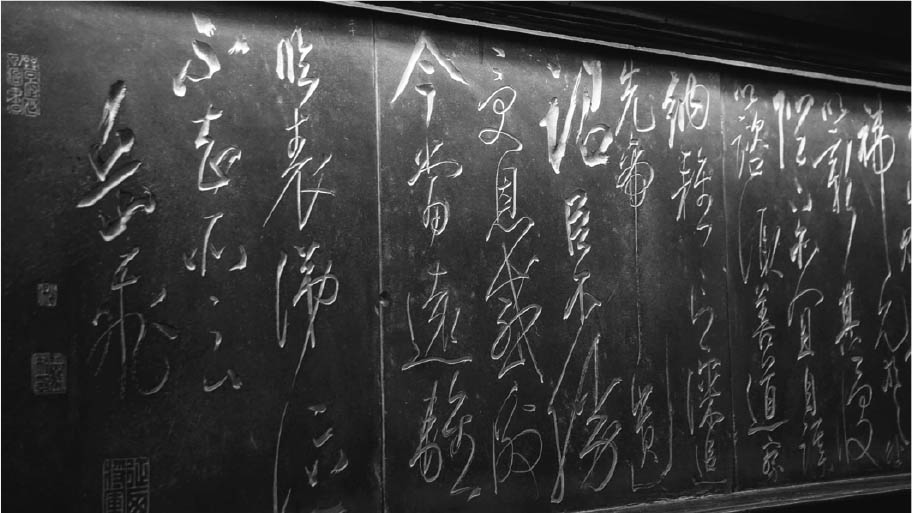 以彰其慢
陛下亦宜自課
以諮諏善道察
納雅言深追
先帝遺
詔臣不勝
受恩感激
今當遠離
臨表涕泣
不知所云
岳飛